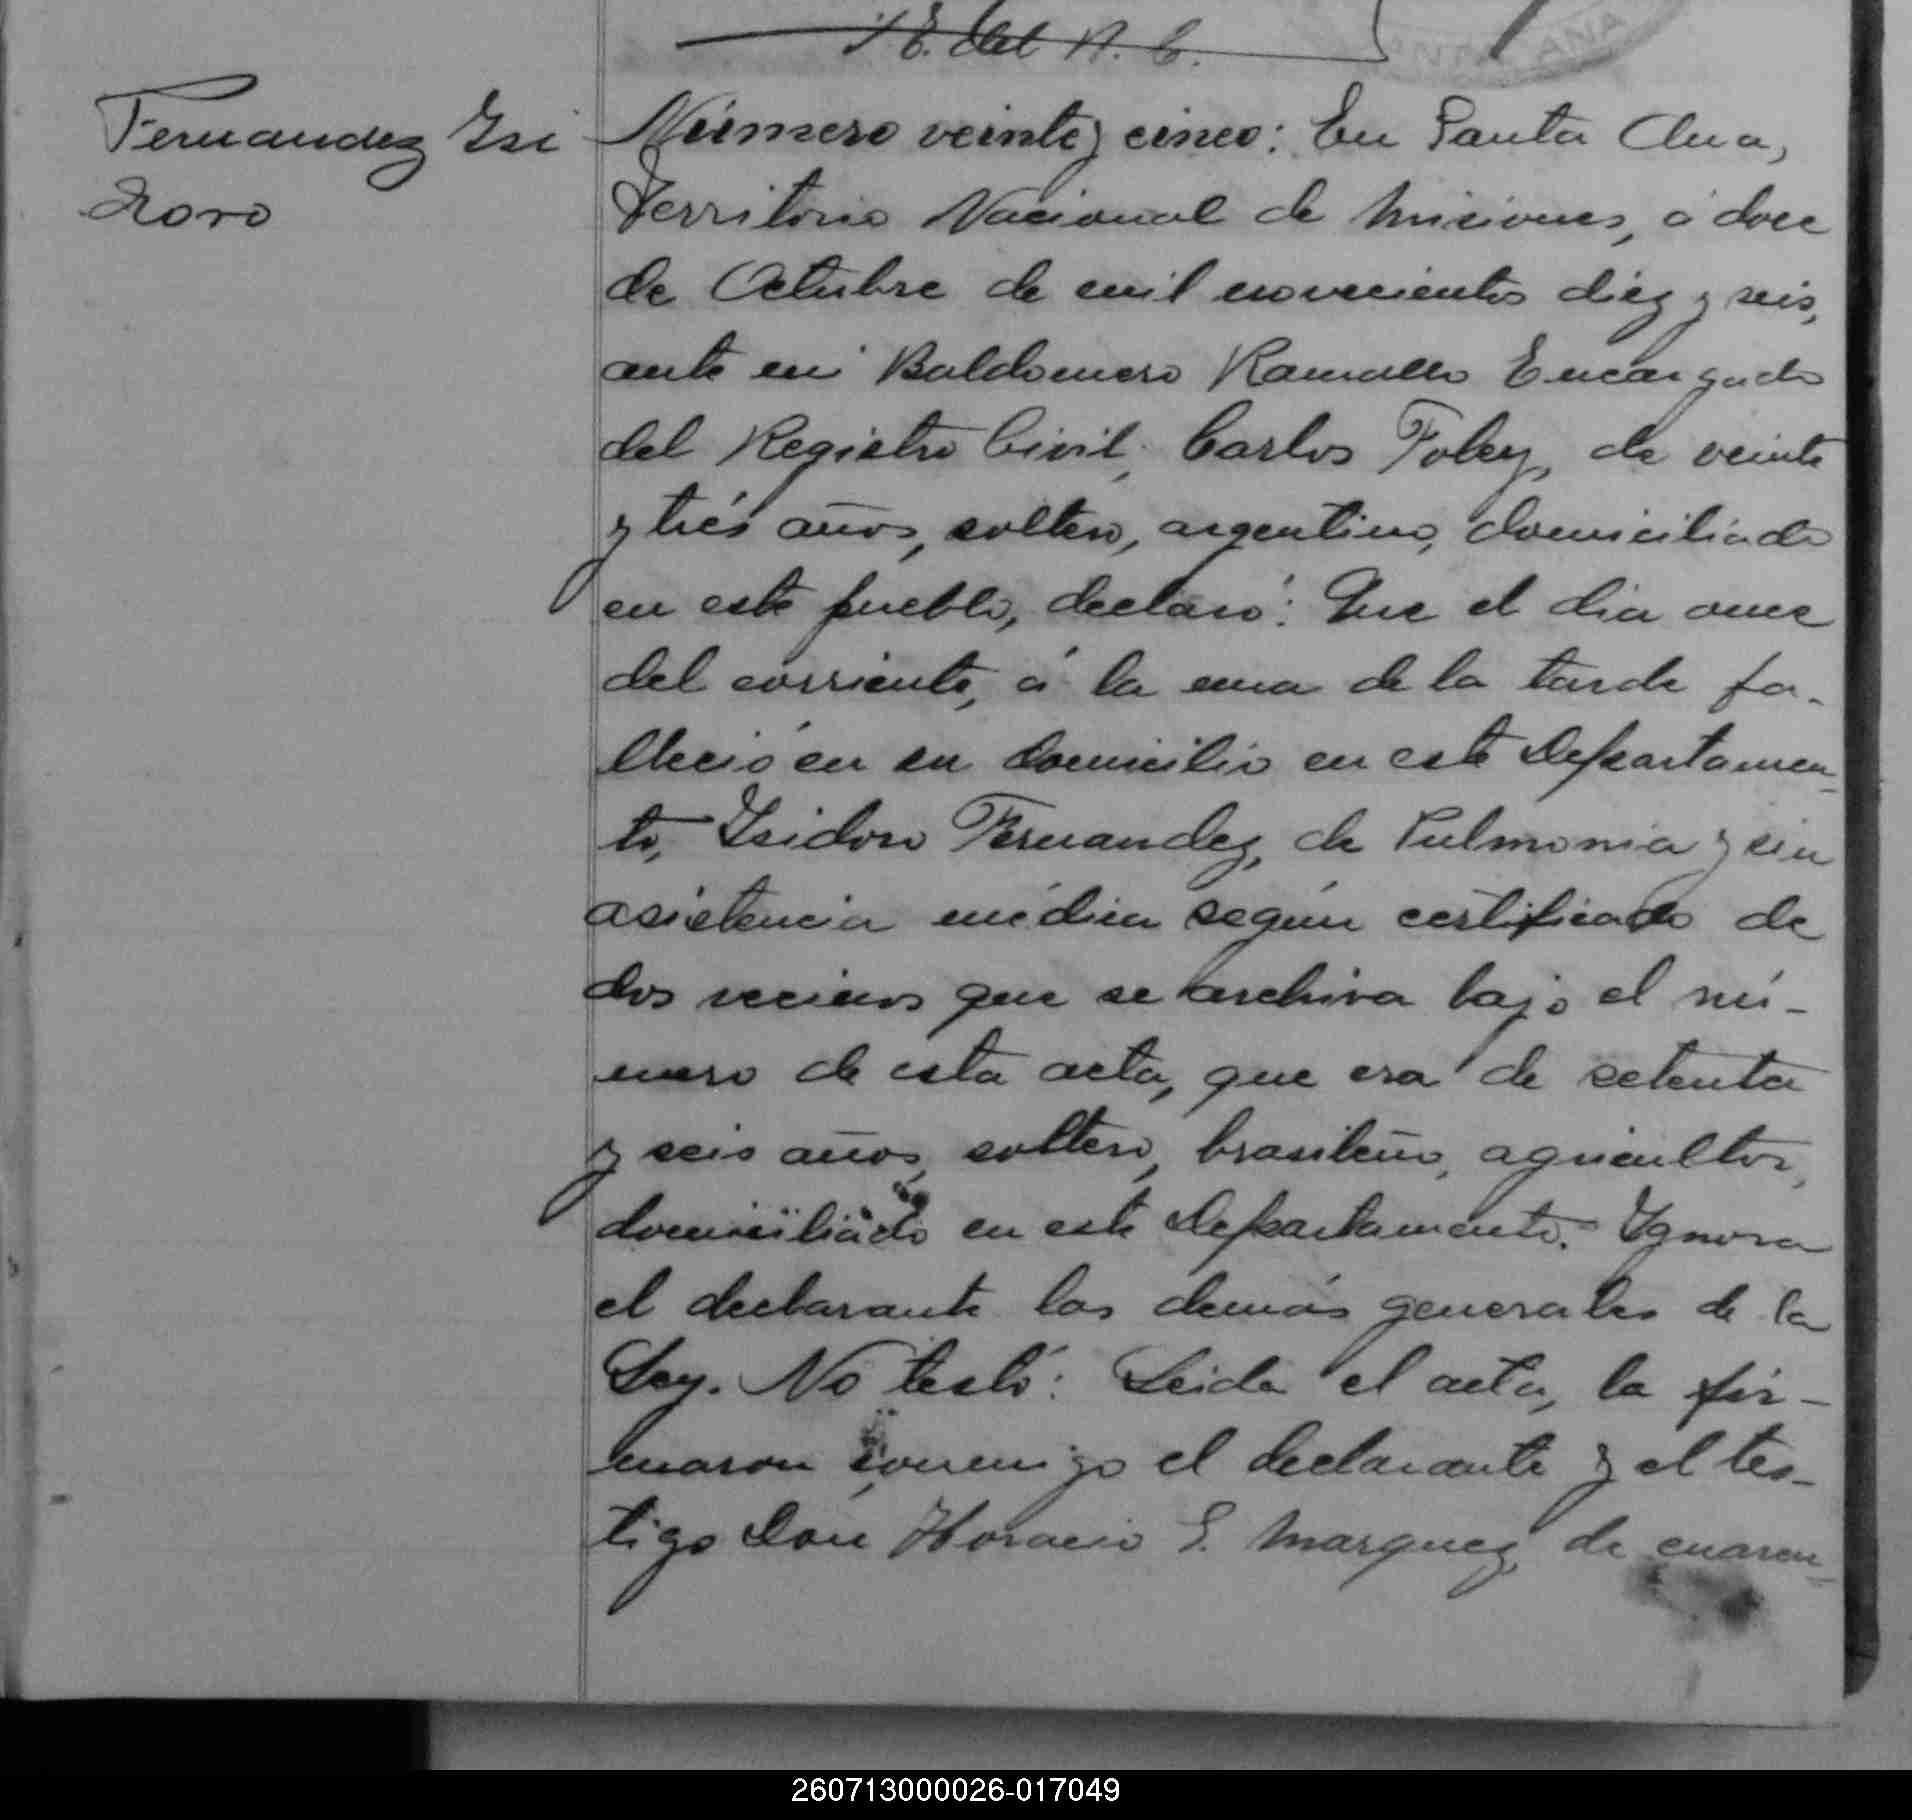 E. del R. C.
ANTA ANA
Fernandez Isi
doro
Número veinte y cinco: En Santa Ana,
Territorio Nacional de Misiones, á doce
de Octubre de mil novecientos diez y seis,
ante mi Baldomero Ramallo Encargado
del Registro Civil, Carlos Foley, de veinte
y trés años, soltero, argentino, domiciliado
en este pueblo, declaró: Que el dia once
del corriente, á la una de la tarde fa-
lleció en su domicilio en este Departamen-
to, Isidoro Fernandez, de Pulmonia y sin
asistencia médica según certificado de
dos vecinos que se archiva bajo el nú-
mero de esta acta, que era de setenta
y seis años, soltero, brasileño, agricultor,
domiciliado en este Departamento. Ignora
el declarante las demás generales de la
Ley. No testó: Leida el acta, la fir-
maron conmigo el declarante y el tes-
tigo Don Horacio E. Marquez, de cuaren-
260713000026-017049